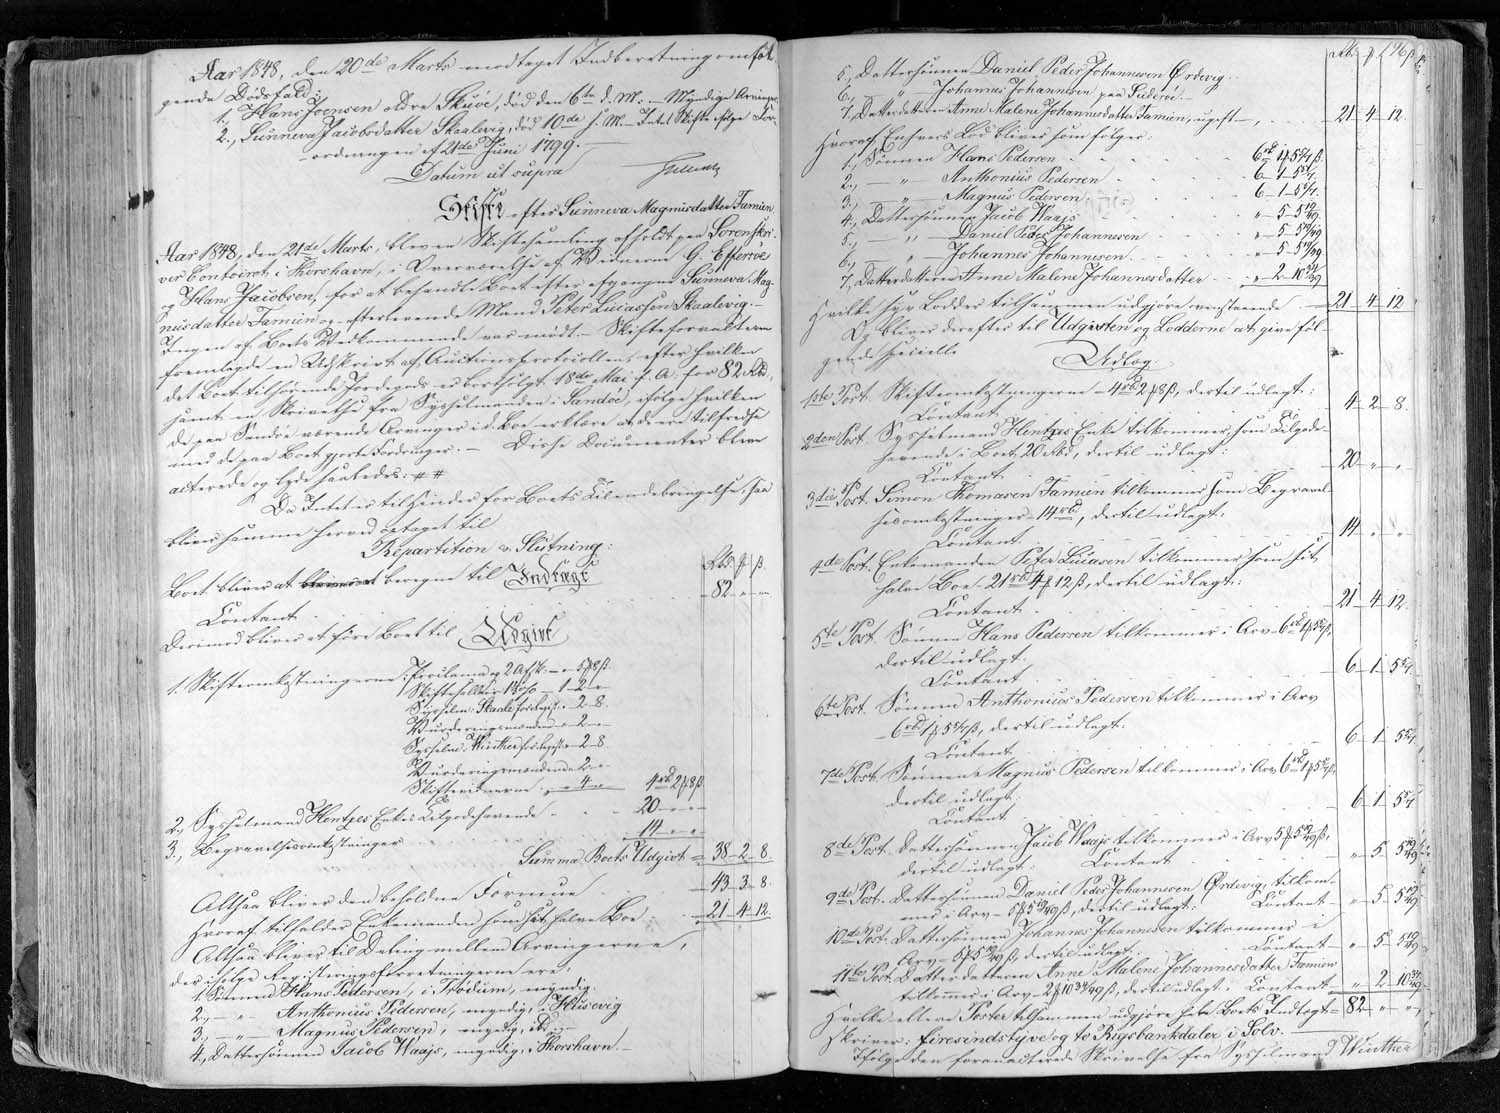 Aar 1848, den 20de Marts modtaget Indberetning om føl
gende Dødsfald:
1, Hans Joensen ældre Skuøe, død den 6te d. M. – Myndige Arvinger
2, Sunneva Jacobsdatter Skaalevig, død 10de s. M. – Intet Skifte ifølge For-
ordningen af 21de Juni 1799. –
Datum ut supra
Skifte efter Sunneva Magnusdatter Famien
Aar 1848, den 21de Marts, blev en Skiftesamling afholdt paa Sorenskri-
ver Contoiret i Thorshavn, i Overværelse af Vidnerne G. Effersøe
og Hans Jacobsen, for at behandle Boet efter afgangne Sunneva Mag-
nusdatter Famien og efterlevende Mand Peter Lucassen Skaalevig. –
Ingen af Boets Vedkommende var mødt. – Skifteforvalteren
fremlagde en Udskrivt af Auctionsprotocollen, efter hvilken
det Boet tilhørende Jordegods er bortsolgt 18de Mai f. A. for 82 Rbd,
samt en Skrivelse fra Sysselmanden i Sandøe, ifølge hvilken
de paa Sandøe værende Arvinger i d. Boe erklære at være tilfredse
med de paa Boet gjorte Fordringer. – Disse Documenter bleve
acterede og lyde saaledes: ##
Da Intet er til Hinder for Boets Tilendebringelse, saa
blev samme herved optaget til
Repartition og Slutning:
Boet bliver at beregne til Indtægt Rbd. ꝟ ß.
Contant 82 " "
Derimod bliver at føre Boet til Udgivt
1. Skifteomkostningerne:
Skiftesallær 1 2 "
Sysselm: Skaale 2 8.
Vurderingsmændene 2 "
Sysselm: Winther 2 8
Vurderingsmændene 2 "
Skiftevidnerne 4 4 rbd 2 ꝟ 8 ß
2., Sysselmand Hentzes Enkes Tilgodehavende 20 " "
3., Begravelsesomkostninger 14 " "
Summa Boets Udgivt 38 2 8.
Altsaa bliver den beholdne Formue 43 3 8.
Hvoraf tilfalder Enkemanden som sit halve Boe 21 4 12.
Altsaa bliver til Deling mellem Arvingerne,
der ifølge Registreringsforretningerne ere:
1. Sønnen Hans Pedersen, i Trødum, myndig.
2., – " – Anthonius Pedersen, myndig, i Husevig
3., – " – Magnus Pedersen, myndig, ib.
4, Dattersønnen Jacob Waajs, myndig, i Thorshavn. –
Rbd ꝟ 196 ß
5, Dattersønnen Daniel Peder Johannesen Ørdevig.
6., – " – Johannes Johannesen paa Suderøe. –
7, Datterdatteren Anne Malene Johannesdatter Famien, ugift –, 21 4 12.
Hvoraf Enhvers Lod bliver som følger:
1., Sønnen Hans Pedersen 6 rbd 1 ꝟ 5 5/7 ß.
2., – " – Anthonius Pedersen 6 1 5 5/7.
3., " Magnus Pedersen 6 1 5 5/7.
4., Dattersønnen Jacob Waajs " 5 5 19/49
5., – " – Daniel Peder Johannesen " 5 5 19/49
6., – " – Johannes Johannesen " 5 5 19/49
7, Datterdatteren Anne Malene Johannesdatter " 2 10 34/49
Hvilke syv Lodder tilsammen udgjøre ovenstaaende 21 4 12
Og bliver derefter til Udgivten og Lodderne at give føl-
gende specielle
Udlæg.
1ste Post. Skifteomkostningerne 4 rbd 2 ꝟ 8 ß, dertil udlagt:
Contant 4 2 8.
2den Post. Sysselmand Hentzes Enke tilkommer, som Tilgode-
havende i Boet 20 Rbd, dertil udlagt:
Contant 20 " "
3die Post. Simon Thomasen Famien tilkommer som Begravel-
sesomkostninger 14 rbd, dertil udlagt:
Contant 14 " "
4de Post. Enkemanden Peter Lucasen tilkommer som sit
halve Boe 21 rbd 4 ꝟ 12 ß, dertil udlagt:
Contant 21 4 12.
5te Post. Sønnen Hans Pedersen tilkommer i Arv 6 rbd 1 ꝟ 5 5/7 ß,
dertil udlagt.
Contant 6 1 5 5/7
6te Post. Sønnen Anthonius Pedersen tilkommer i Arv
6 rbd 1 ꝟ 5 5/7 ß, dertil udlagt.
Contant 6 1 5 5/7
7de Post. Sønnen Magnus Pedersen tilkommer i Arv 6 rbd 1 ꝟ 5 5/7 ß,
dertil udlagt:
Contant 6 1 5 5/7
8de Post. Dattersønnen Jacob Waajs tilkommer i Arv 5 ꝟ 5 19/49 ß,
dertil udlagt Contant " 5 5 19/49
9de Post. Dattersønnen Daniel Peder Johannesen Ørdevig, tilkom-
mer i Arv 5 ꝟ 5 19/49 ß, dertil udlagt. Contant " 5 5 19/49
10de Post. Dattersønnen Johannes Johannesen tilkommer i
Arv 5 ꝟ 5 19/49 ß, dertil udlagt. Contant " 5 5 19/49
11te Post. Datterdatteren Anne Malene Johannesdatter Famien
tilkommer i Arv 2 ꝟ 10 34/49 ß, dertil udlagt Contant " 2 10 34/49
Hvilke ellve Poster tilsammen udgjøre hele Boets Indtægt 82 " "
skriver: firesindstyve og to Rigsbankdaler i Sølv. –
Ifølge den foranacterede Skrivelse fra Sysselmand Winther